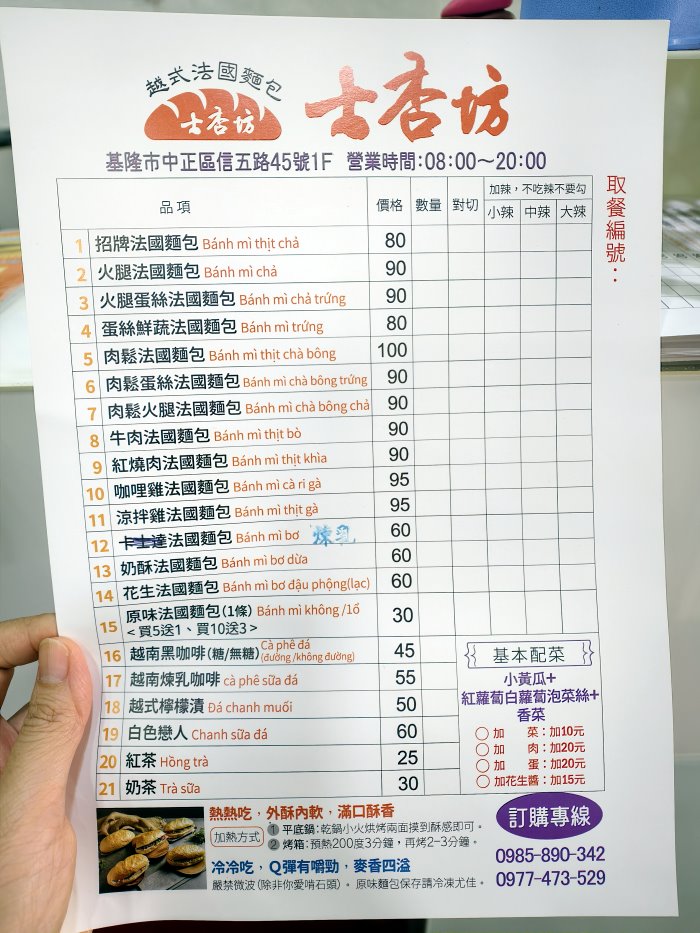 越式法國麵包
士杏坊
士杏坊
基隆市中正區信五路45號1F 營業時間:08:00～20:00
取餐編號：
品項 價格 數量 對切 加辣，不吃辣不要勾
小辣 中辣 大辣
1 招牌法國麵包 Bánh mì thịt chả 80
2 火腿法國麵包 Bánh mì chả 90
3 火腿蛋絲法國麵包 Bánh mì chả trứng 90
4 蛋絲鮮蔬法國麵包 Bánh mì trứng 80
5 肉鬆法國麵包 Bánh mì thịt chà bông 100
6 肉鬆蛋絲法國麵包 Bánh mì chà bông trứng 90
7 肉鬆火腿法國麵包 Bánh mì chà bông chả 90
8 牛肉法國麵包 Bánh mì thịt bò 90
9 紅燒肉法國麵包 Bánh mì thịt khìa 90
10 咖哩雞法國麵包 Bánh mì cà ri gà 95
11 涼拌雞法國麵包 Bánh mì thịt gà 95
12 卡士達法國麵包 Bánh mì bơ 煉乳 60
13 奶酥法國麵包 Bánh mì bơ dừa 60
14 花生法國麵包 Bánh mì bơ đậu phộng(lạc) 60
15 原味法國麵包(1條) Bánh mì không /1ổ 30
＜買5送1、買10送3＞
16 越南黑咖啡(糖/無糖) Cà phê đá (đường /không đường) 45
17 越南煉乳咖啡 cà phê sữa đá 55
18 越式檸檬漬 Đá chanh muối 50
19 白色戀人 Chanh sữa đá 60
20 紅茶 Hồng trà 25
21 奶茶 Trà sữa 30
基本配菜
小黃瓜+
紅蘿蔔白蘿蔔泡菜絲+
香菜
○加 菜：加10元
○加 肉：加20元
○加 蛋：加20元
○加花生醬：加15元
熱熱吃，外酥內軟，滿口酥香
加熱方式
1 平底鍋：乾鍋小火烘烤兩面摸到酥感即可。
2 烤箱：預熱200度3分鐘，再烤2-3分鐘。
冷冷吃，Q彈有嚼勁，麥香四溢
嚴禁微波(除非你愛啃石頭)。原味麵包保存請冷凍尤佳。
訂購專線
0985-890-342
0977-473-529